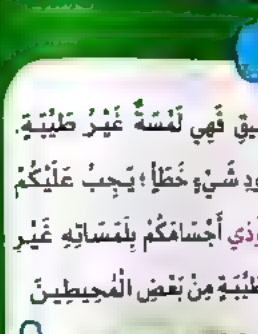 فَهِيَ لَمْسَةٌ غَيْرُ طَيِّبَةٍ.
شَيْءٍ خَطَأٍ؛ يَجِبُ عَلَيْكُمْ
أَجْسَامَكُمْ بِلَمَسَاتِهِ غَيْرِ
مِنْ بَعْضِ الْمُحِيطِينَ